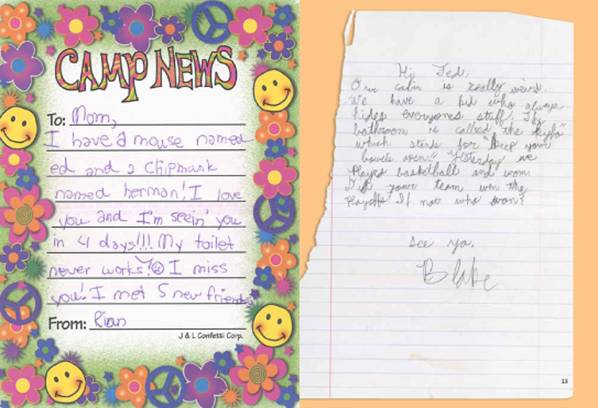 CAMP NEWS
To: Mom,
I have a mouse named
ed and 2 chipmunk
named herman! I love
you and I'm seein' you
in 4 days!!! My toilet
never works! I miss
you! I met 5 new friends
From: Rian
J & L Confetti Corp.
Hi Ted,
Our cabin is really weird.
We have a kid who always
hides everyones stuff. The
bathroom is called the
which stands for "Keep your
bowels open." Yesterday we
played basketball and won.
Did your team win the
playoffs If not who won?
See ya,
Blake
13